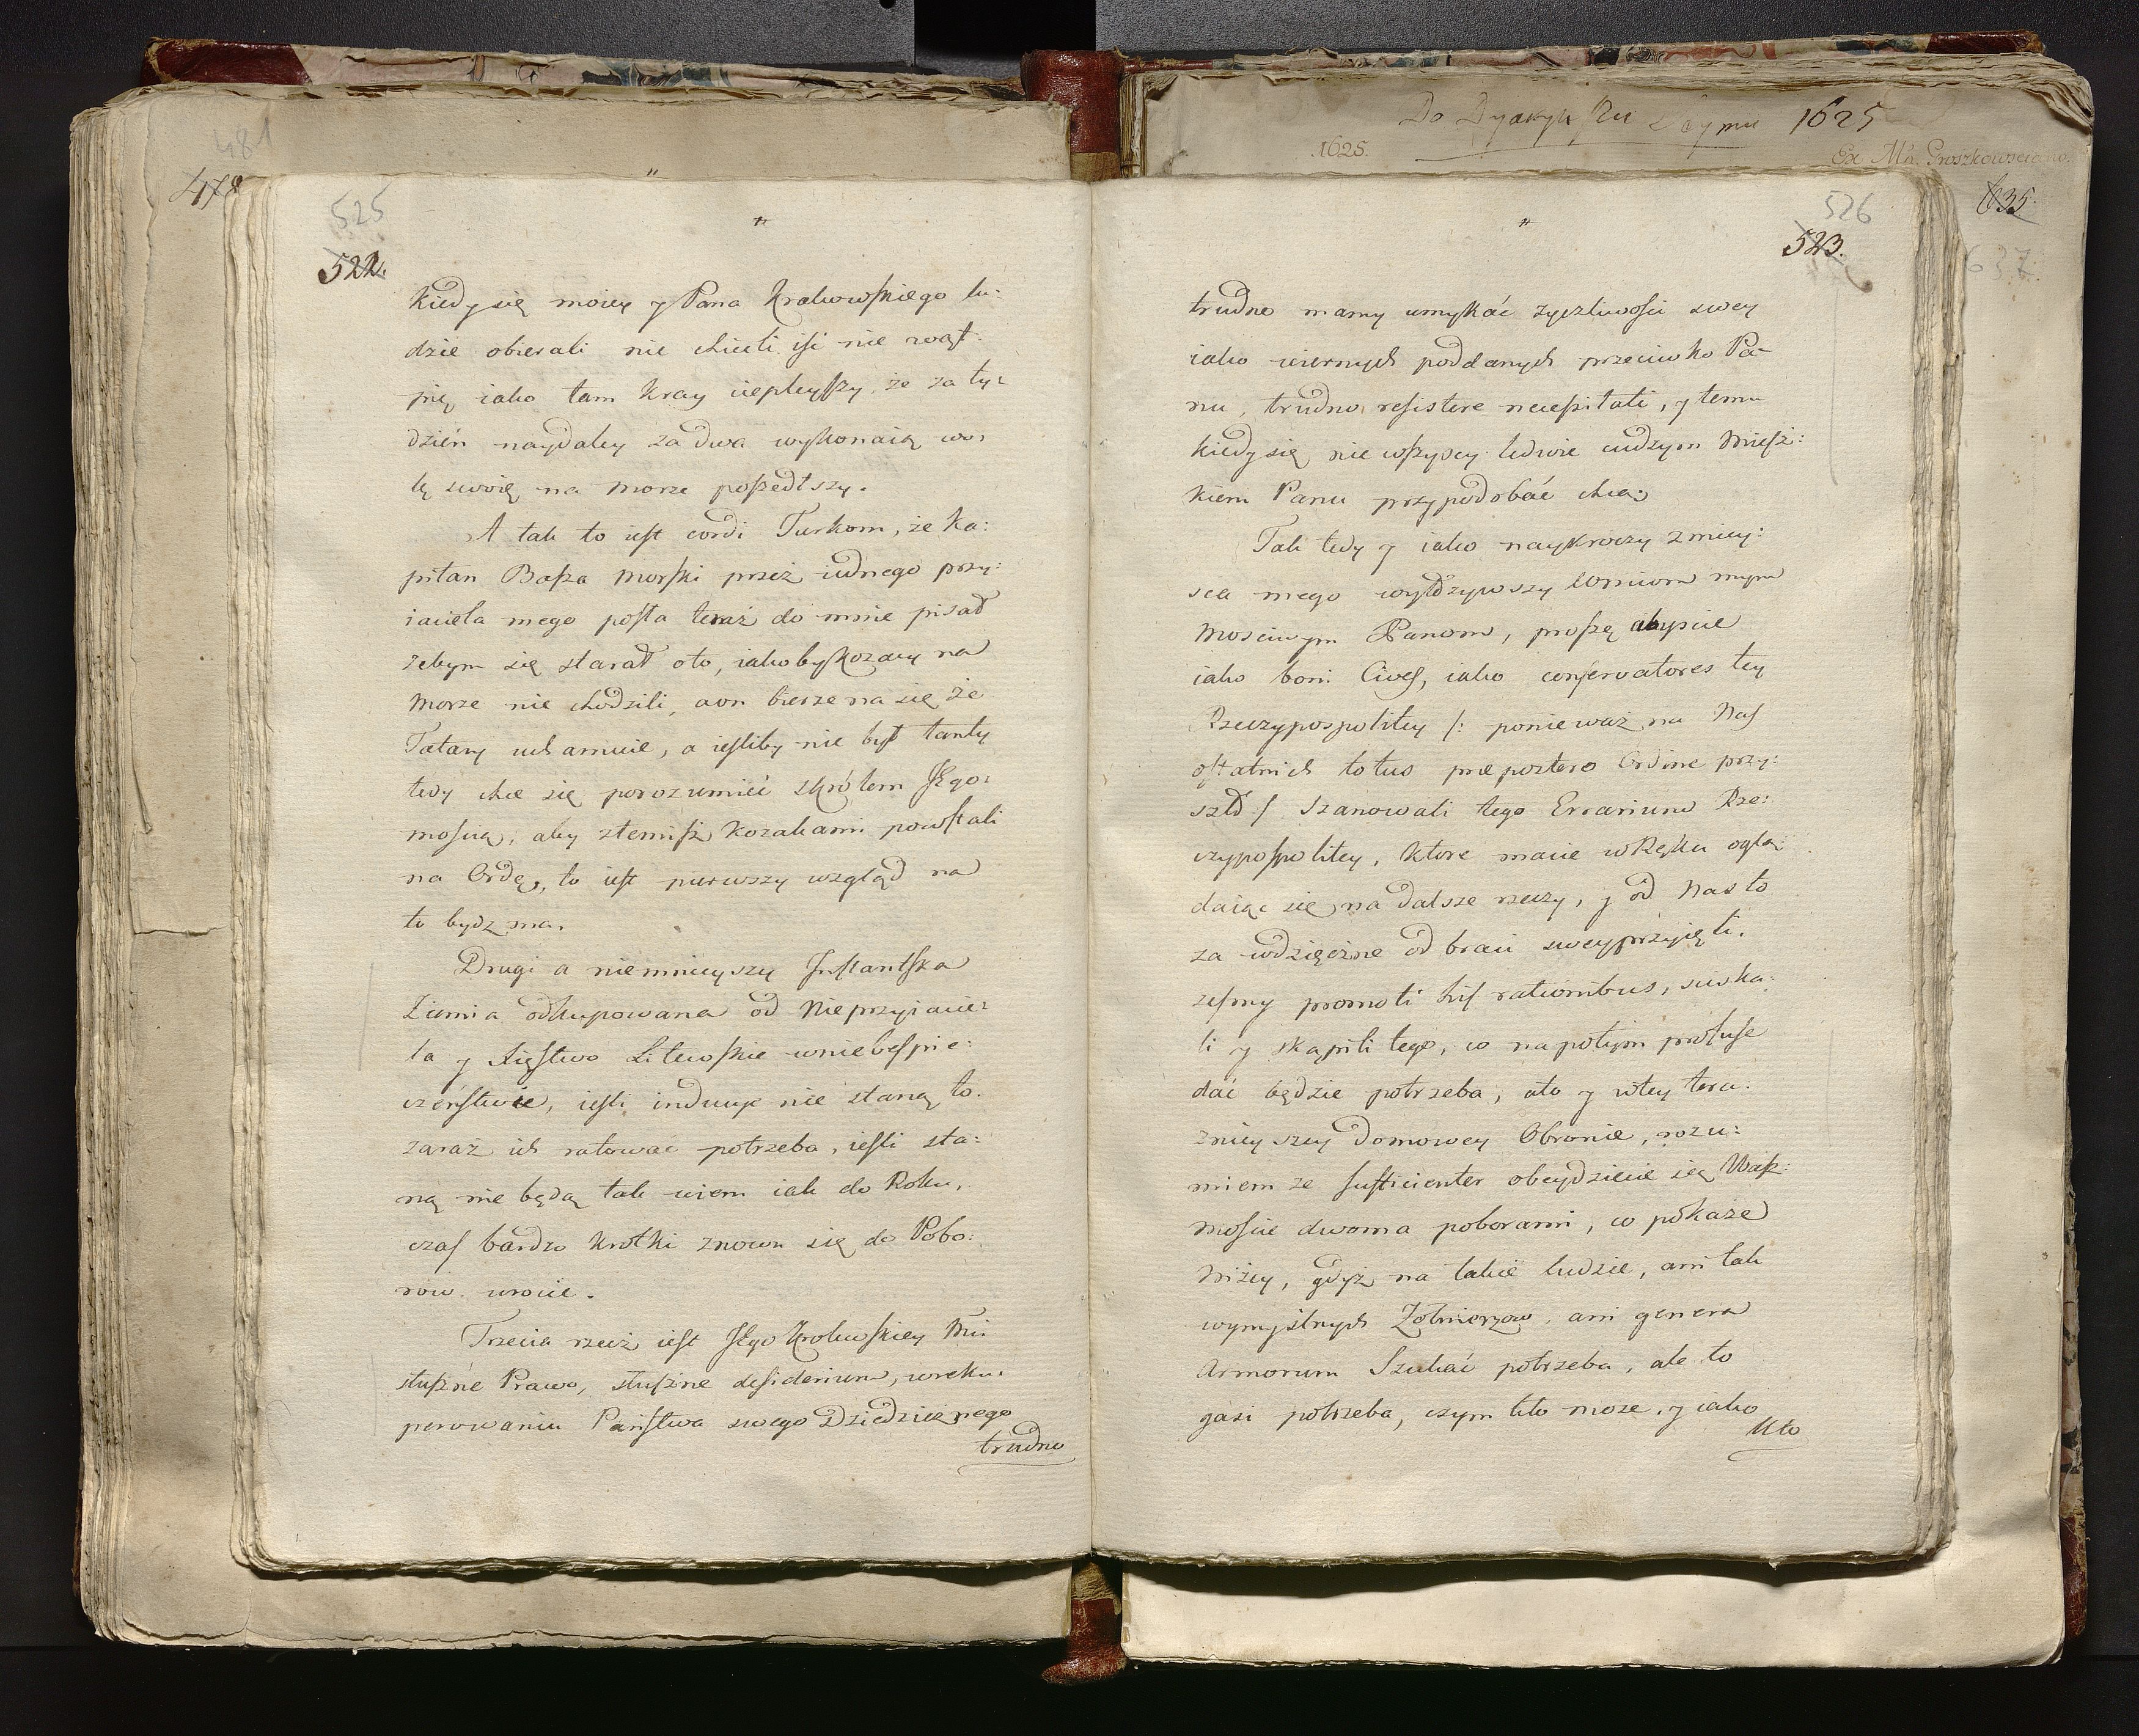 481
478
"
Do Dyaryuszu Seymu 1625
1625.
Ex Ms. Groszkowsciano.
635.
637.
525
522.
"
kiedy się moiey y Pana Krakowskiego lu:
dzie obierali nie chcieli iśi nie wąt:
pię iako tam kray ciepleyszy, że za ty:
dzień naydaley za dwa wykonaią wo:
lę swoię na morze poszedłszy.
A tak to iest cordi Turkom, że Ka:
pitan Basza morski przeż iednego przy:
iaciela mego posła teraż do mnie pisał
żebym się starał o to, iakoby Kozacy na
morze nie chodzili, a on bierze na się że
Tatary uhamuie, a iesliby nie był tanty
tedy chce się porozumieć z Krolem Jego:
mością, aby z temisz Kozakami powstali
na Ordę, to iest pierwszy wzgląd na
to bydz ma.
Drugi a niemnieyszy Inflantska
Ziemia odkupowana od Nieprzyiacie:
la y Xięstwo Litewskie w niebespie:
czeństwie, iesli inducye nie staną to
zaraz ich ratować potrzeba, iesli sta:
ną nie będą tak wiem iak do Roku,
czas bardzo krotki znowu się do Pobo:
row wrocie.
Trzecia rzecz iest Jego Krolewskiey Mci
słuszne Prawo, słuszne desiderium, w reku:
perowaniu Państwa swego Dziedzicznego
trudno
526
523.
"
trudno mamy umykać zyczliwości swey
iako wiernych poddanych przeciwko Pa:
nu, trudno resistere necessitati, y temu
kiedy się nie wszyscy ledwie cudzym Miesz:
kiem Panu przypodobać chcą.
Tak tedy y iako naykroczy z miey:
sca mego wyłożywszy Wm. moim mym
Mosciwym Panom, proszę abyscie
iako boni Cives, iako conservatores tey
Rzeczypospolitey /: ponieważ na Nas
ostatnich totus praepostero Ordine przy:
szło :/ Szanowali tego Erarium Rze:
czypospolitey, ktore macie w Ręku oglą:
daiąc się na dalsze rzeczy, y od Nas to
za wdzięczne od braci swey przyięli,
zesmy promoti his rationibus, sciska:
li y skąpili tego, co napotym profuse
dać będzie potrzeba, ato y w tey tera:
znieyszey domowey Obronie, rozu:
miem ze sufficienter obeydziecie się Wasz:
moscie dwoma poborami, co pokaże
niżey, gdyż na takie ludzie, ani tak
wymyślnych Zołnierzow, ani genera
Armorum Szukać potrzeba, ale to
gasi potrzeba, czym kto może, y iako
kto